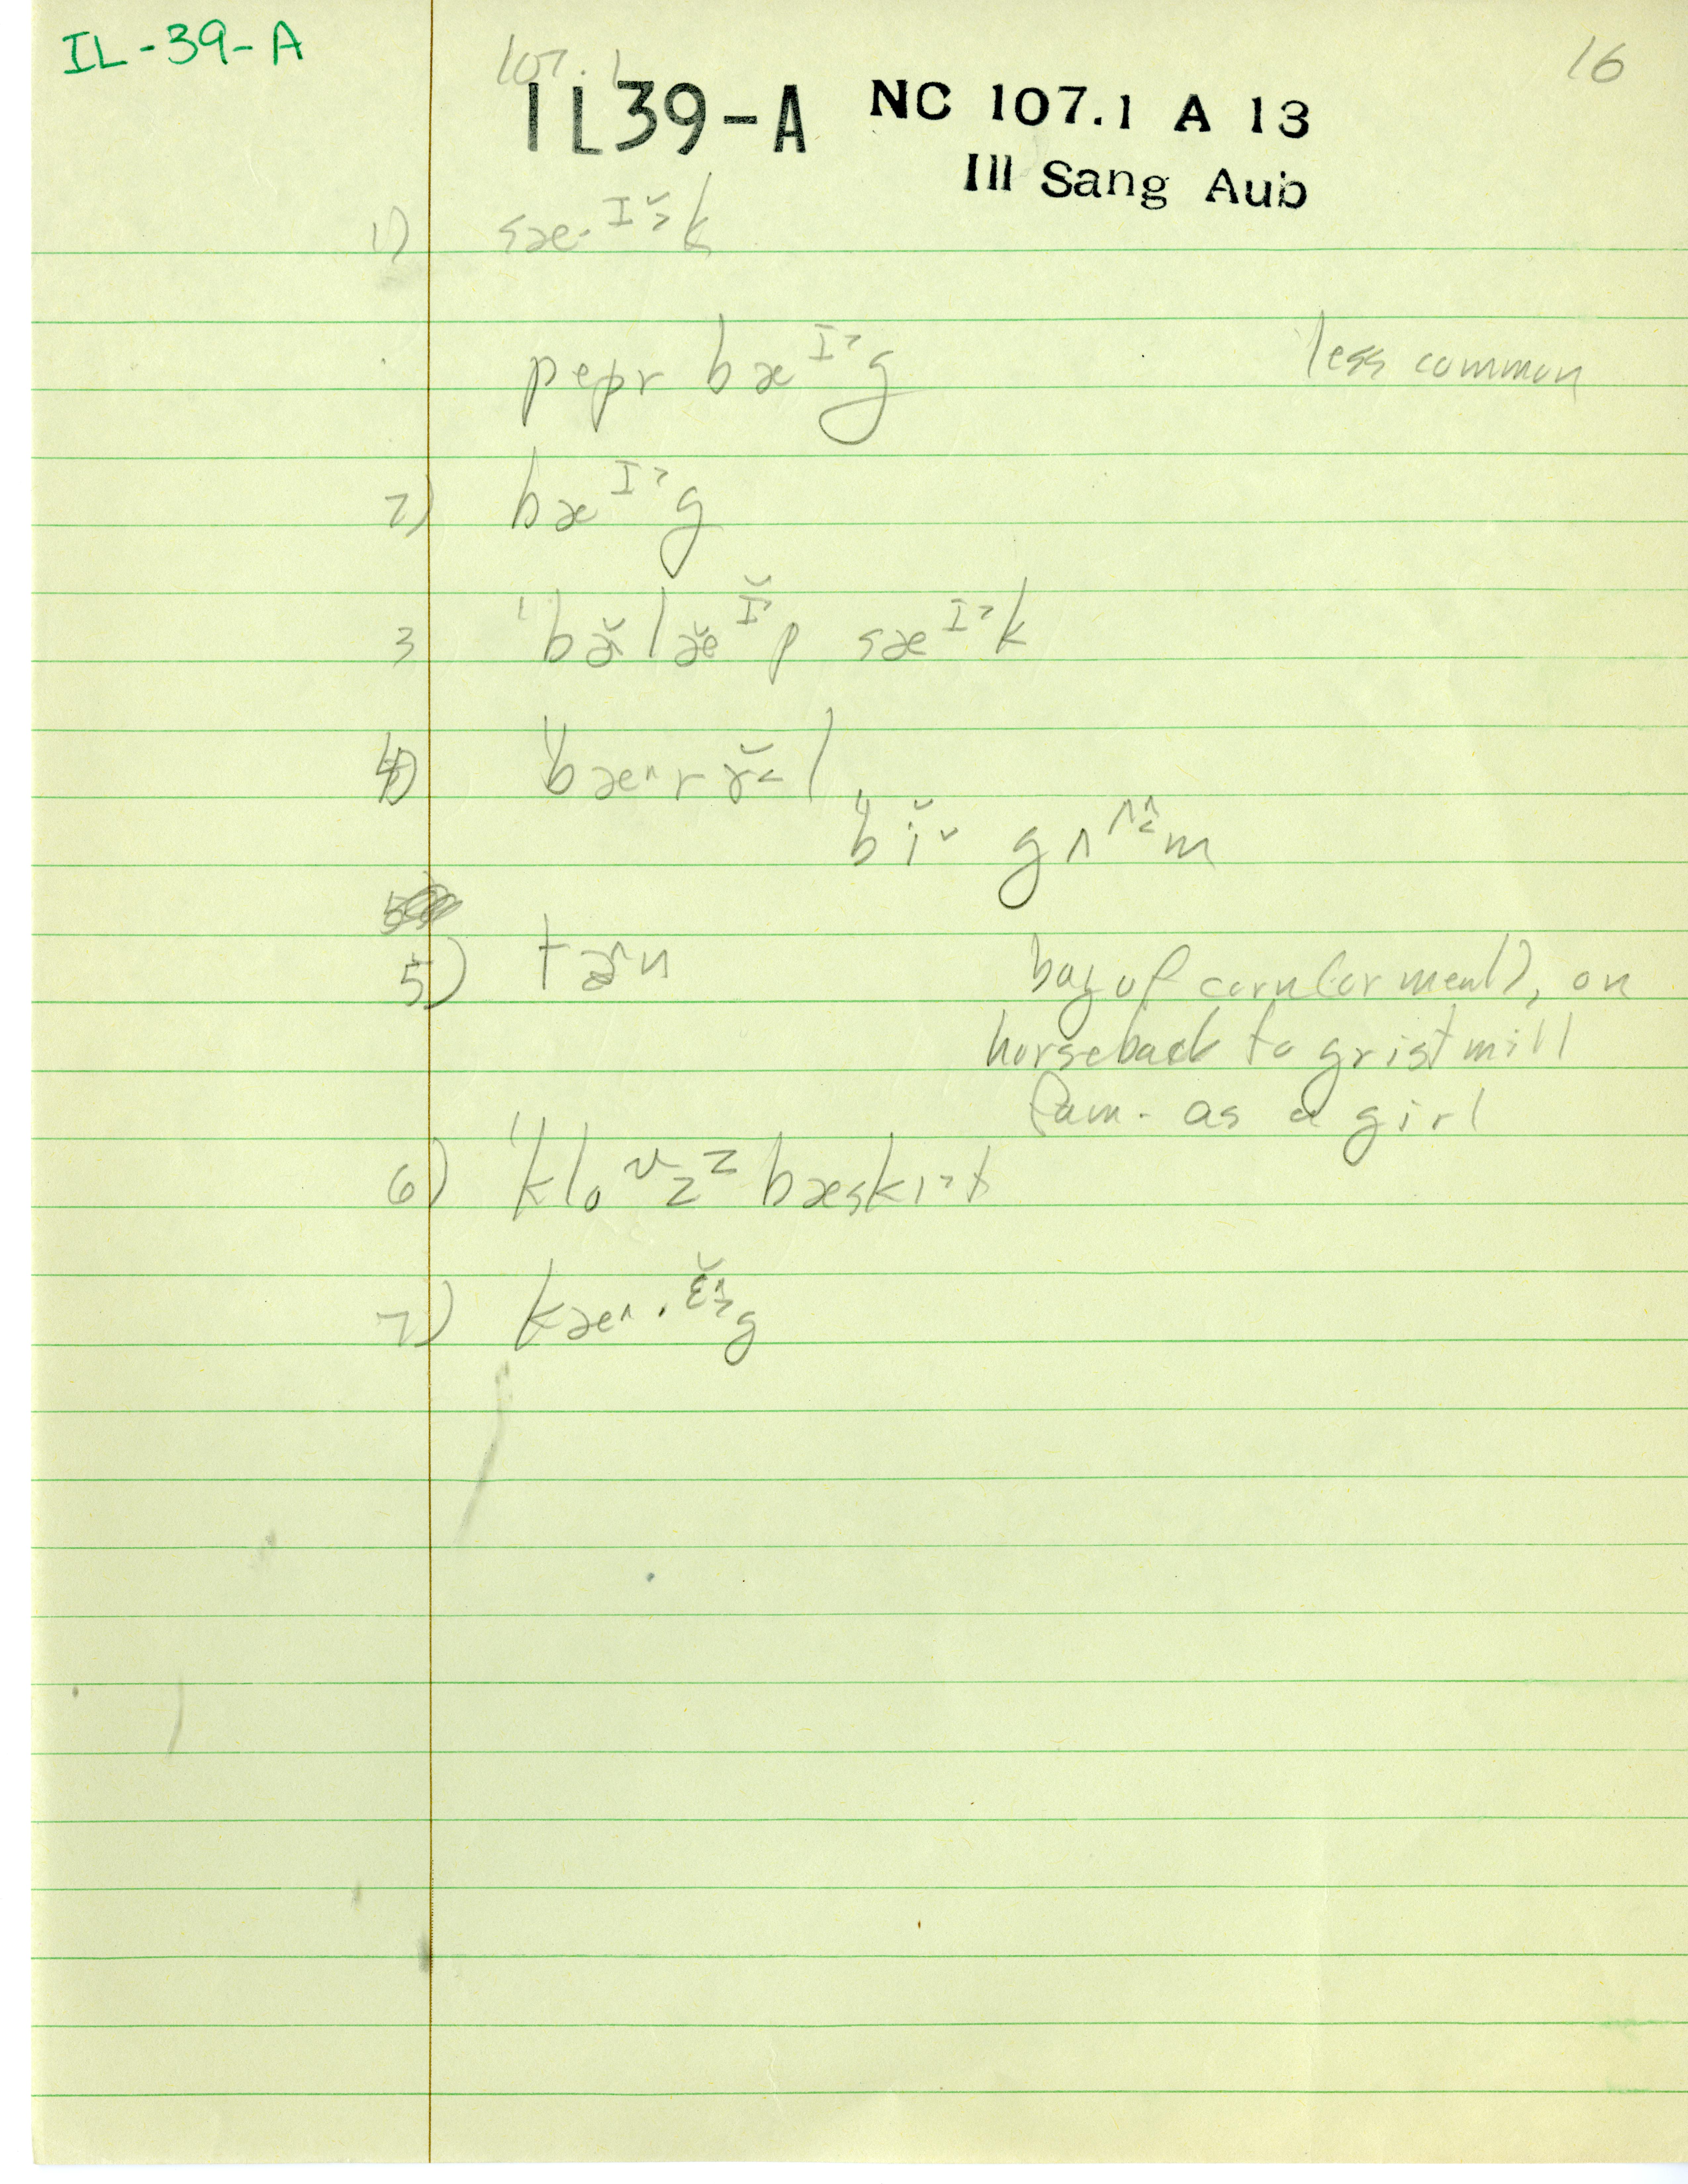 IL-39-A
107.1
16
IL39-A NC 107.1 A 13
Ill Sang Aub
1) sæ·ᴵ̆˃k
pepr bæᴵ˃g less common
2) bæᴵ˃g
3 ˈbɤ̆læ̆ᴵ̆˃p sæᴵ˃k
4) ˈbæ^rɤ̆˂l
ˈbĭ˅ gʌ
5)
5) tɤ^n bag of corn (or meal), on
horseback to grist mill
fam. as a girl
6) bæskɪ˃t
7) kæ^·ɛ̆g